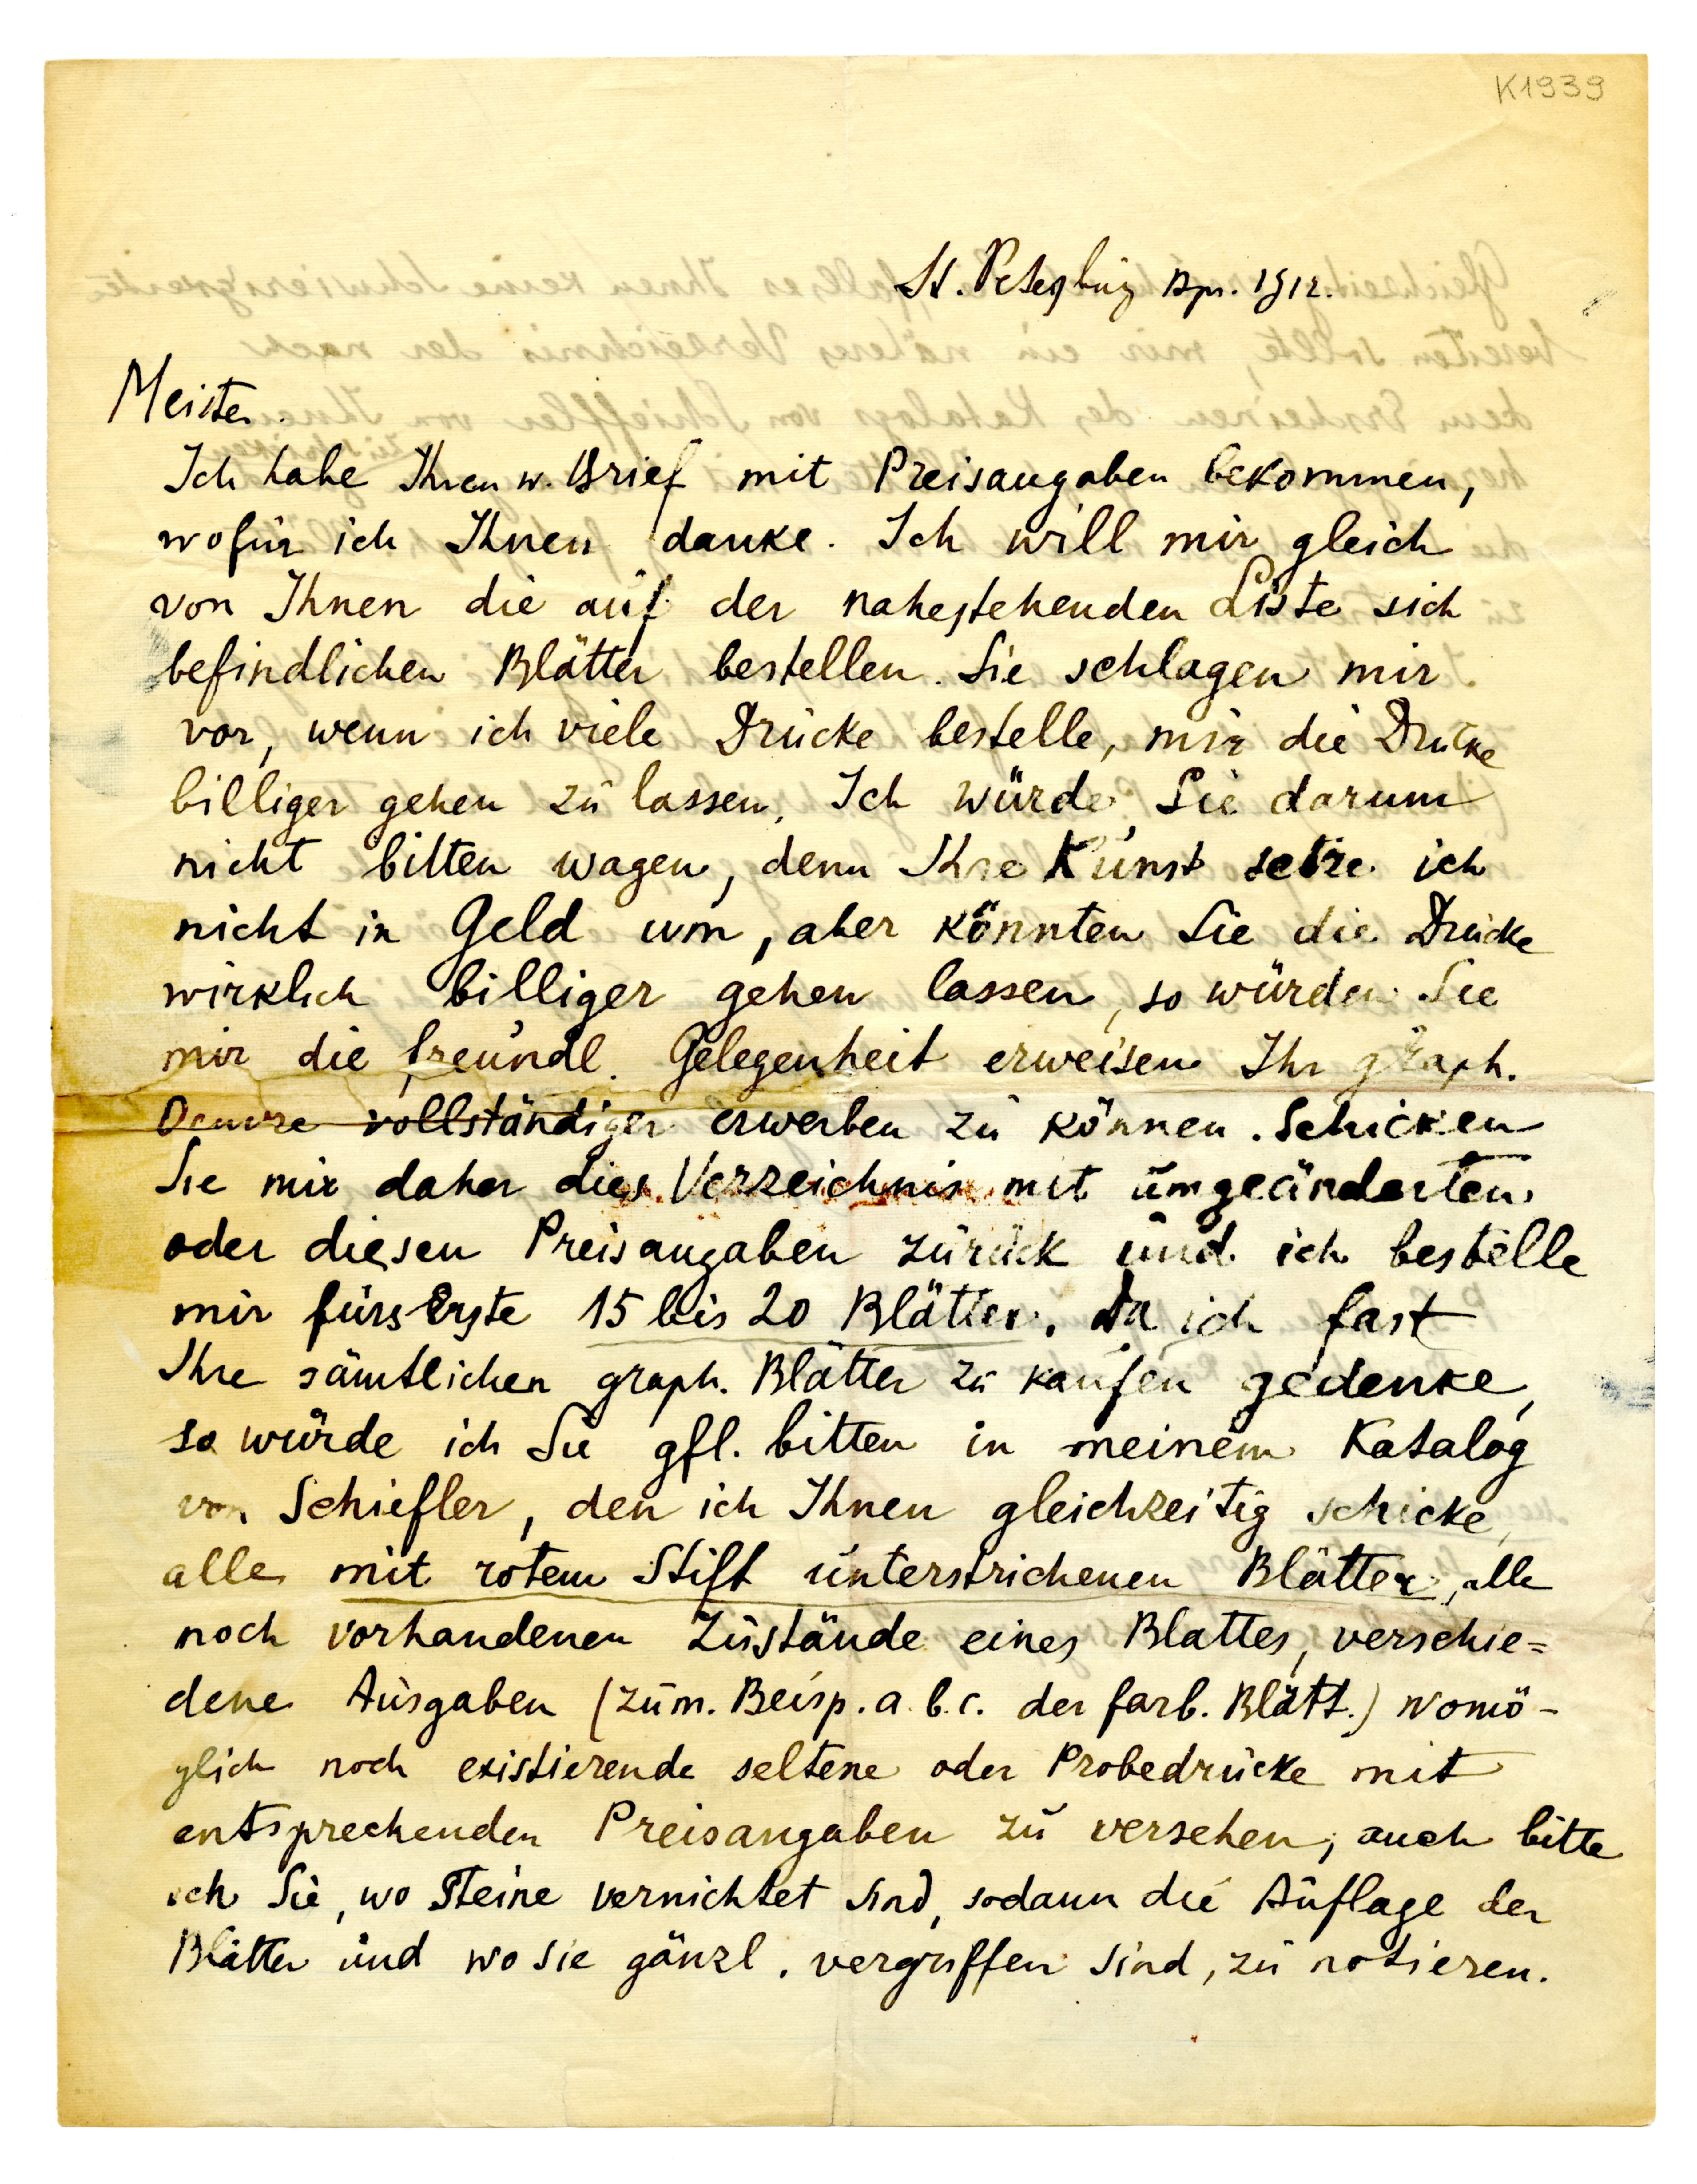 K1939
St. Petersburg Apr. 1912.
Meister.
Ich habe Ihren w. Brief mit Preisangaben bekommen,
wofür ich Ihnen danke. Ich will mir gleich
von Ihnen die auf der nahestehenden Liste sich
befindlichen Blätter bestellen. Sie schlagen mir
vor, wenn ich viele Drücke bestelle, mir die Drücke
billiger gehen zu lassen. Ich würde Sie darum
nicht bitten wagen, denn Ihre Kunst setze ich
nicht in Geld um, aber könnten Sie die Drücke
wirklich billiger gehen lassen, so würden Sie
mir die freundl. Gelegenheit erweisen Ihr graph.
Oeuvre vollständiger erwerben zu können. Schicken
Sie mir daher dies Verzeichnis mit umgeänderten
oder diesen Preisangaben zurück und ich bestelle
mir fürs Erste 15 bis 20 Blätter. Da ich fast
Ihre sämtlichen graph. Blätter zu kaufen gedenke,
so würde ich Sie gfl. bitten in meinem Katalog
von Schiefler, den ich Ihnen gleichzeitig schicke,
alle mit rotem Stift unterstrichenen Blätter, alle
noch vorhandenen Zustände eines Blattes, verschie=
dene Ausgaben (zum. Beisp. a. b. c. der farb. Blätt.) womö-
glich noch existierende seltene oder Probedrücke mit
entsprechenden Preisangaben zu versehen, auch bitte
ich Sie, wo Steine vernichtet sind, sodann die Auflage der
Blätter und wo sie gänzl. vergriffen sind, zu notieren.